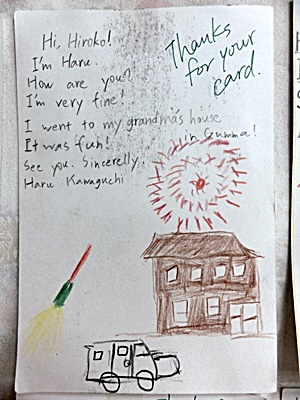 Hi, Hiroko!
I'm Haru.
How are you?
I'm very fine!
I went to my grandma's house
in Gumma!
It was fun!
See you. Sincerelly.
Haru Kawaguchi
Thanks
for your
card.